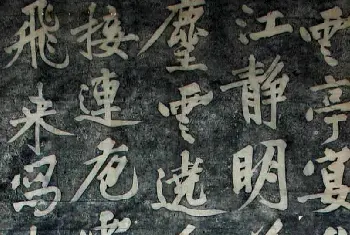 雲亭宴
江靜明
塵雲遶
接連危
飛来寫